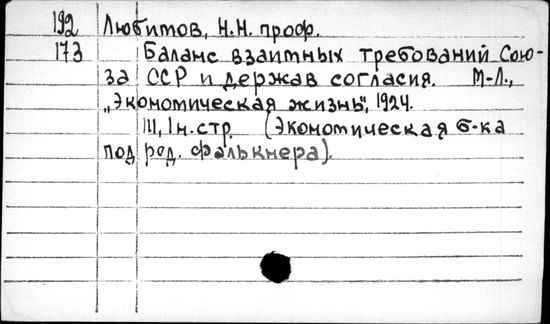 192 Любимов, Н.Н. проф.
173 Баланс взаимных требований Сою-
за ССР и держав согласия. М-Л.,
„Экономическая жизнь", 1924.
111, 1 н.стр. (Экономическая б-ка
под ред. Фалькнера).